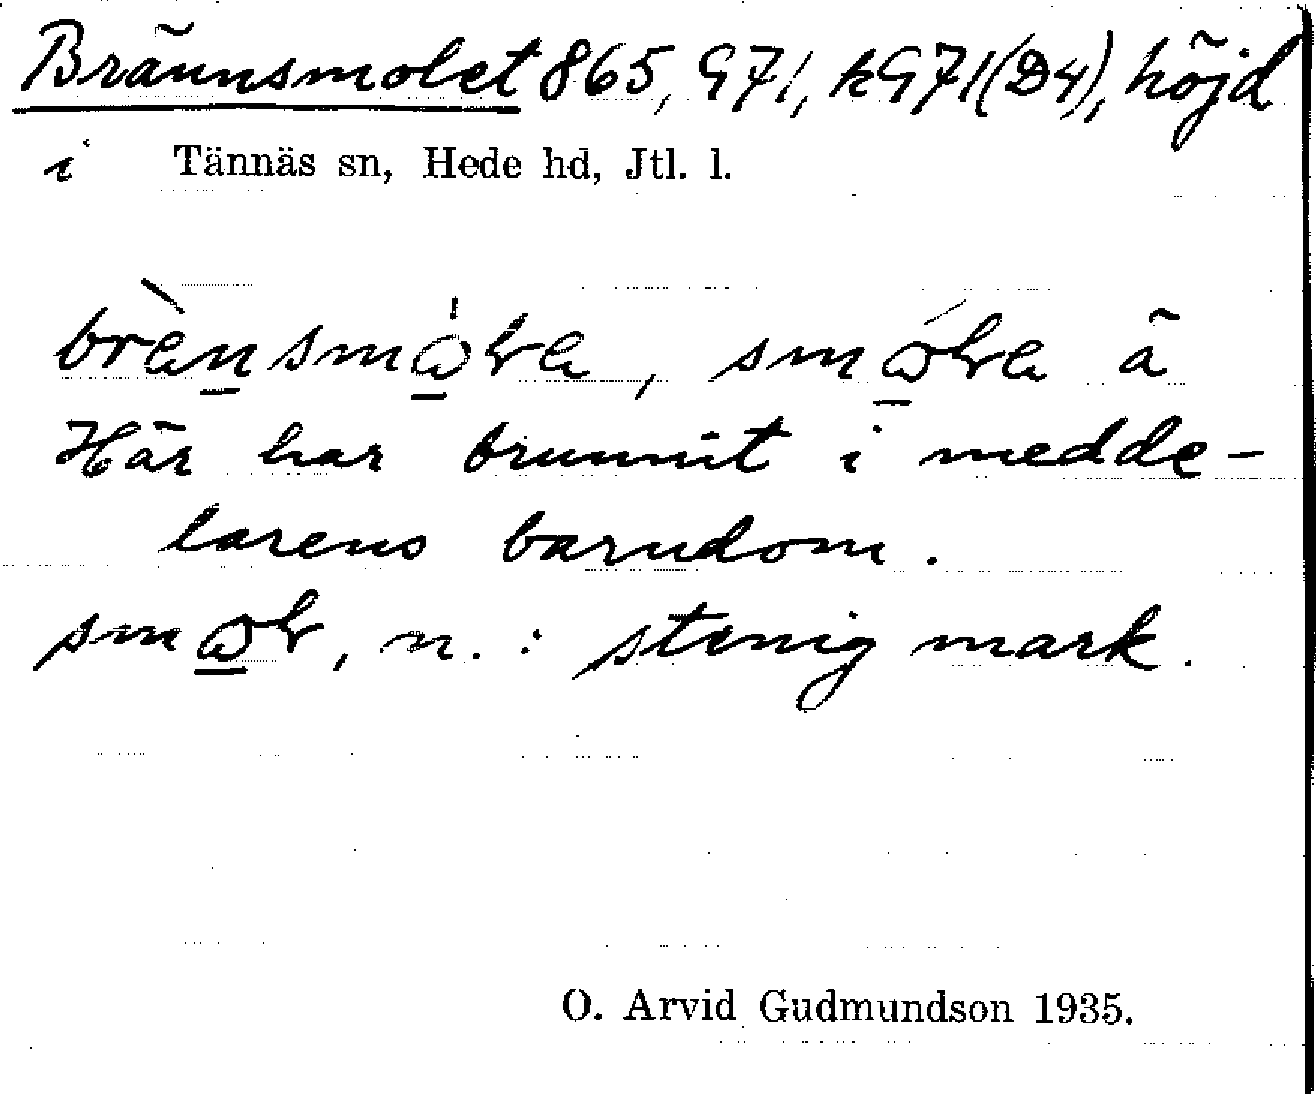 Brännsmolet 865, G71, kG71(D4), höjd
i Tännäs sn, Hede hd, Jtl. l.
Här har brunnit i medde-
larens barndom.
n. : stenig mark.
O. Arvid Gudmundson 1935.